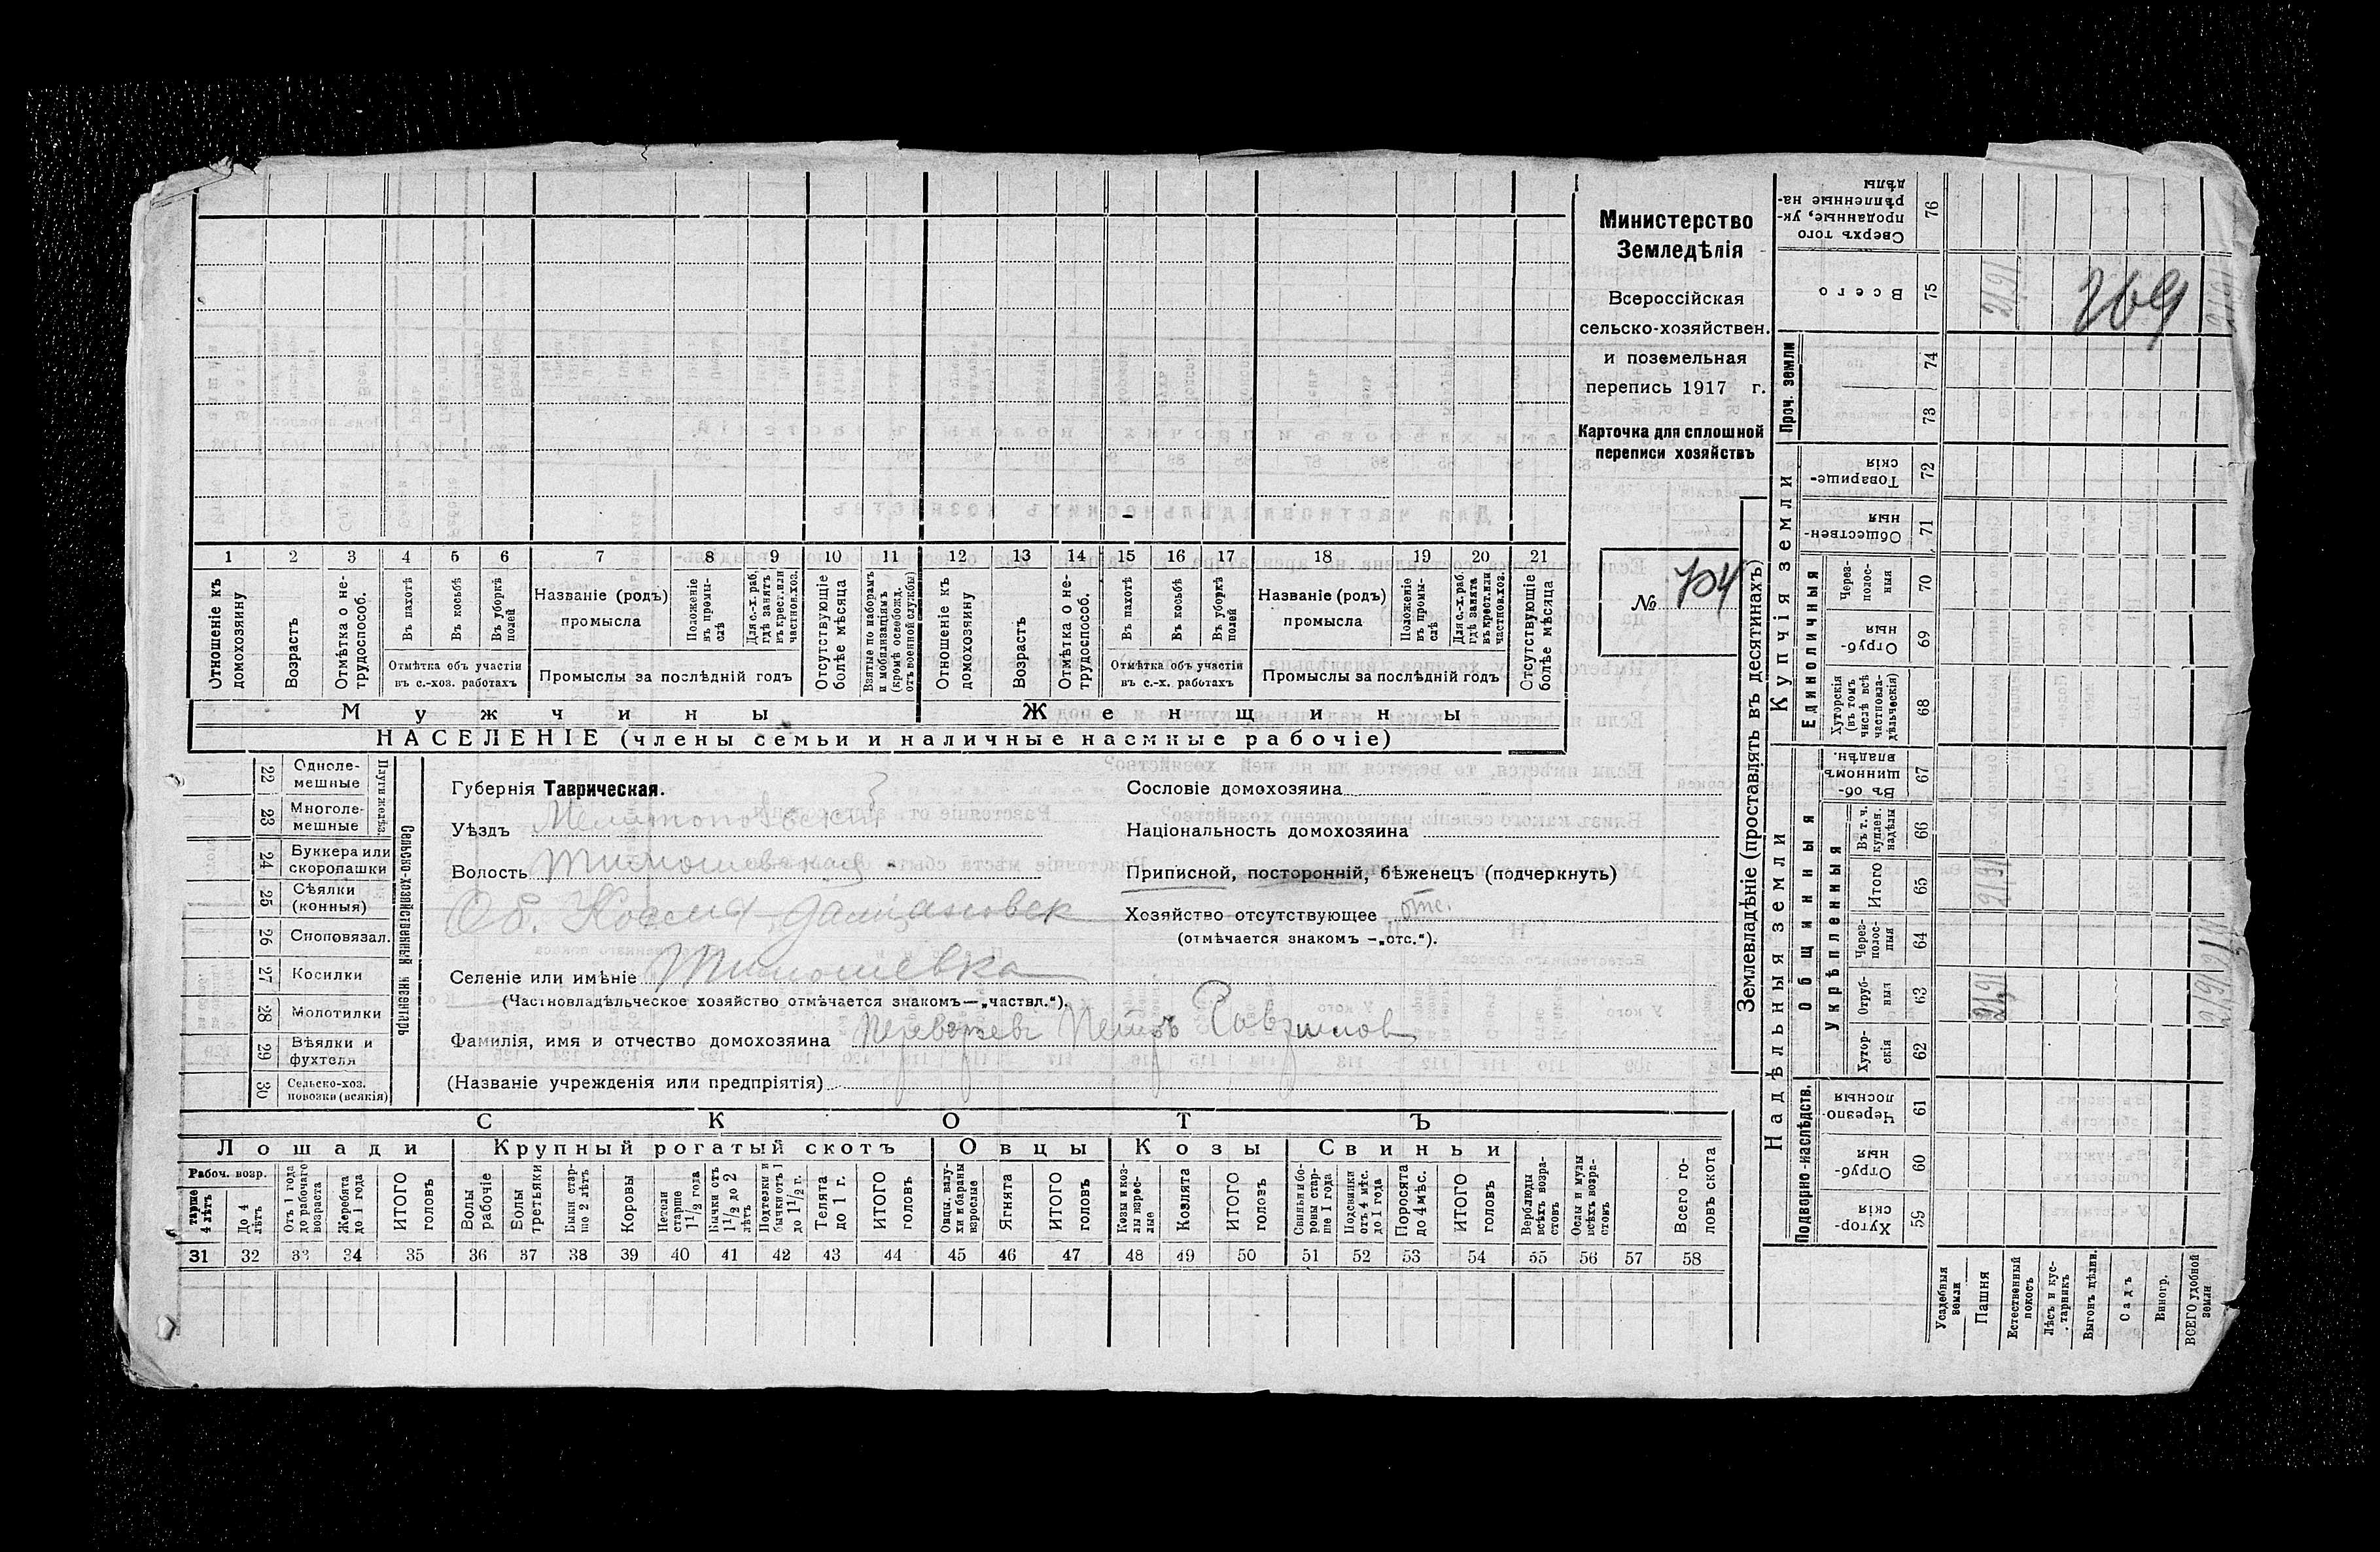 Министерство
Земледѣлія
Всероссійская
сельско-хозяйствен.
и поземельная
перепись 1917 г.
Карточка для сплошной
переписи хозяйствъ
№ 704
1 2 3 4 5 6 7 8 9 10 11 12 13 14 15 16 17 18 19 20 21
Отношеніе къ домохозяину
Возрастъ
Отмѣтка о не-трудоспособ.
Въ пахотѣ
Въ косьбѣ
Въ уборкѣ полей
Отмѣтка объ участіи
въ с.-хоз. работахъ
Названіе (родъ)
промысла
Положеніе въ промы-слѣ
Для с.-х. раб., гдѣ занятъ въ крест. или частнов. хоз.
Промыслы за послѣдній годъ
Отсутствующіе болѣе мѣсяца
Взятые по наборамъ и мобилизаціямъ (кромѣ освобожд. отъ военной службы)
Отношеніе къ домохозяину
Возрастъ
Отмѣтка о не-трудоспособ.
Въ пахотѣ
Въ косьбѣ
Въ уборкѣ полей
Отмѣтка объ участіи
въ с.-х. работахъ
Названіе (родъ)
промысла
Положеніе въ промы-слѣ
Для с.-х. раб. гдѣ занята въ крест. или частнов. хоз.
Промыслы за послѣдній годъ
Отсутствующіе болѣе мѣсяца
Мужчины Женщины
НАСЕЛЕНІЕ (члены семьи и наличные наемные рабочіе)
Сельско-хозяйственный инвентарь
Плуги желѣз.
22 Одноле-мешные
23 Многоле-мешные
24 Буккера или скоропашки
25 Сѣялки (конныя)
26 Сноповязал.
27 Косилки
28 Молотилки
29 Вѣялки и фухтеля
30 Сельско-хоз. повозки (всякія)
Губернія Таврическая.
Уѣздъ Мелитопольскій
Волость Тимошевская
Об.
Селеніе или имѣніе Тимошевка
(Частновладѣльческое хозяйство отмѣчается знакомъ—„частвл.“).
Фамилія, имя и отчество домохозяина
(Названіе учрежденія или предпріятія)
Сословіе домохозяина
Національность домохозяина
Приписной, посторонній, бѣженецъ (подчеркнуть)
Хозяйство отсутствующее отс.
(отмѣчается знакомъ —„отс.“).
СКОТЪ
Лошади Крупный рогатый скотъ Овцы Козы Свиньи
Рабоч. возр.
тарше 4 лѣтъ
До 4 лѣтъ
Отъ 1 года до рабочаго возраста
Жеребята до 1 года
ИТОГО головъ
Волы рабочіе
Волы третьяки
Быки стар-ше 2 лѣтъ
Коровы
Нетели старше 1½ года
Бычки отъ 1½ до 2 лѣтъ
Подтелки и бычки отъ 1 до 1½ г.
Телята до 1 г.
ИТОГО головъ
Овцы, валу-хи и бараны взрослые
Ягнята
ИТОГО головъ
Козы и коз-лы взрос-лые
Козлята
ИТОГО головъ
Свиньи и бо-ровы стар-ше 1 года
Подсвинки отъ 4 мѣс. до 1 года
Поросята до 4 мѣс.
ИТОГО головъ
Верблюды всѣхъ возра-стовъ
Ослы и мулы всѣхъ возра-стовъ
Всего го-ловъ скота
31 32 33 34 35 36 37 38 39 40 41 42 43 44 45 46 47 48 49 50 51 52 53 54 55 56 57 58
Землевладѣніе (проставлять въ десятинахъ)
Надѣльныя земли
Купчія земли
Проч. земли
Подворно-наслѣдств.
Общинныя
Укрѣпленныя
Единоличныя
Хутор-скія 59
Отруб-ныя 60
Черезпо-лосныя 61
Хутор-скія 62
Отруб-ныя 63
Через-полос-ныя 64
Итого 65
Въ т. ч. куплен. надѣлы 66
Въ об-щинномъ владѣн. 67
Хуторскія (въ томъ числѣ всѣ частновла-дѣльческія) 68
Отруб-ныя 69
Через-полос-ныя 70
Обществен-ныя 71
Товарище-скія 72
73
74
Всего 75
Сверхъ того проданные, ук-рѣпленные на-дѣлы 76
Усадебныя земли
Пашня
Естественный покосъ
Лѣсъ и кус-тарникъ
Выгонъ цѣлин.
Садъ
Виногр.
ВСЕГО удобной земли
21,91
21,91
21,91
269